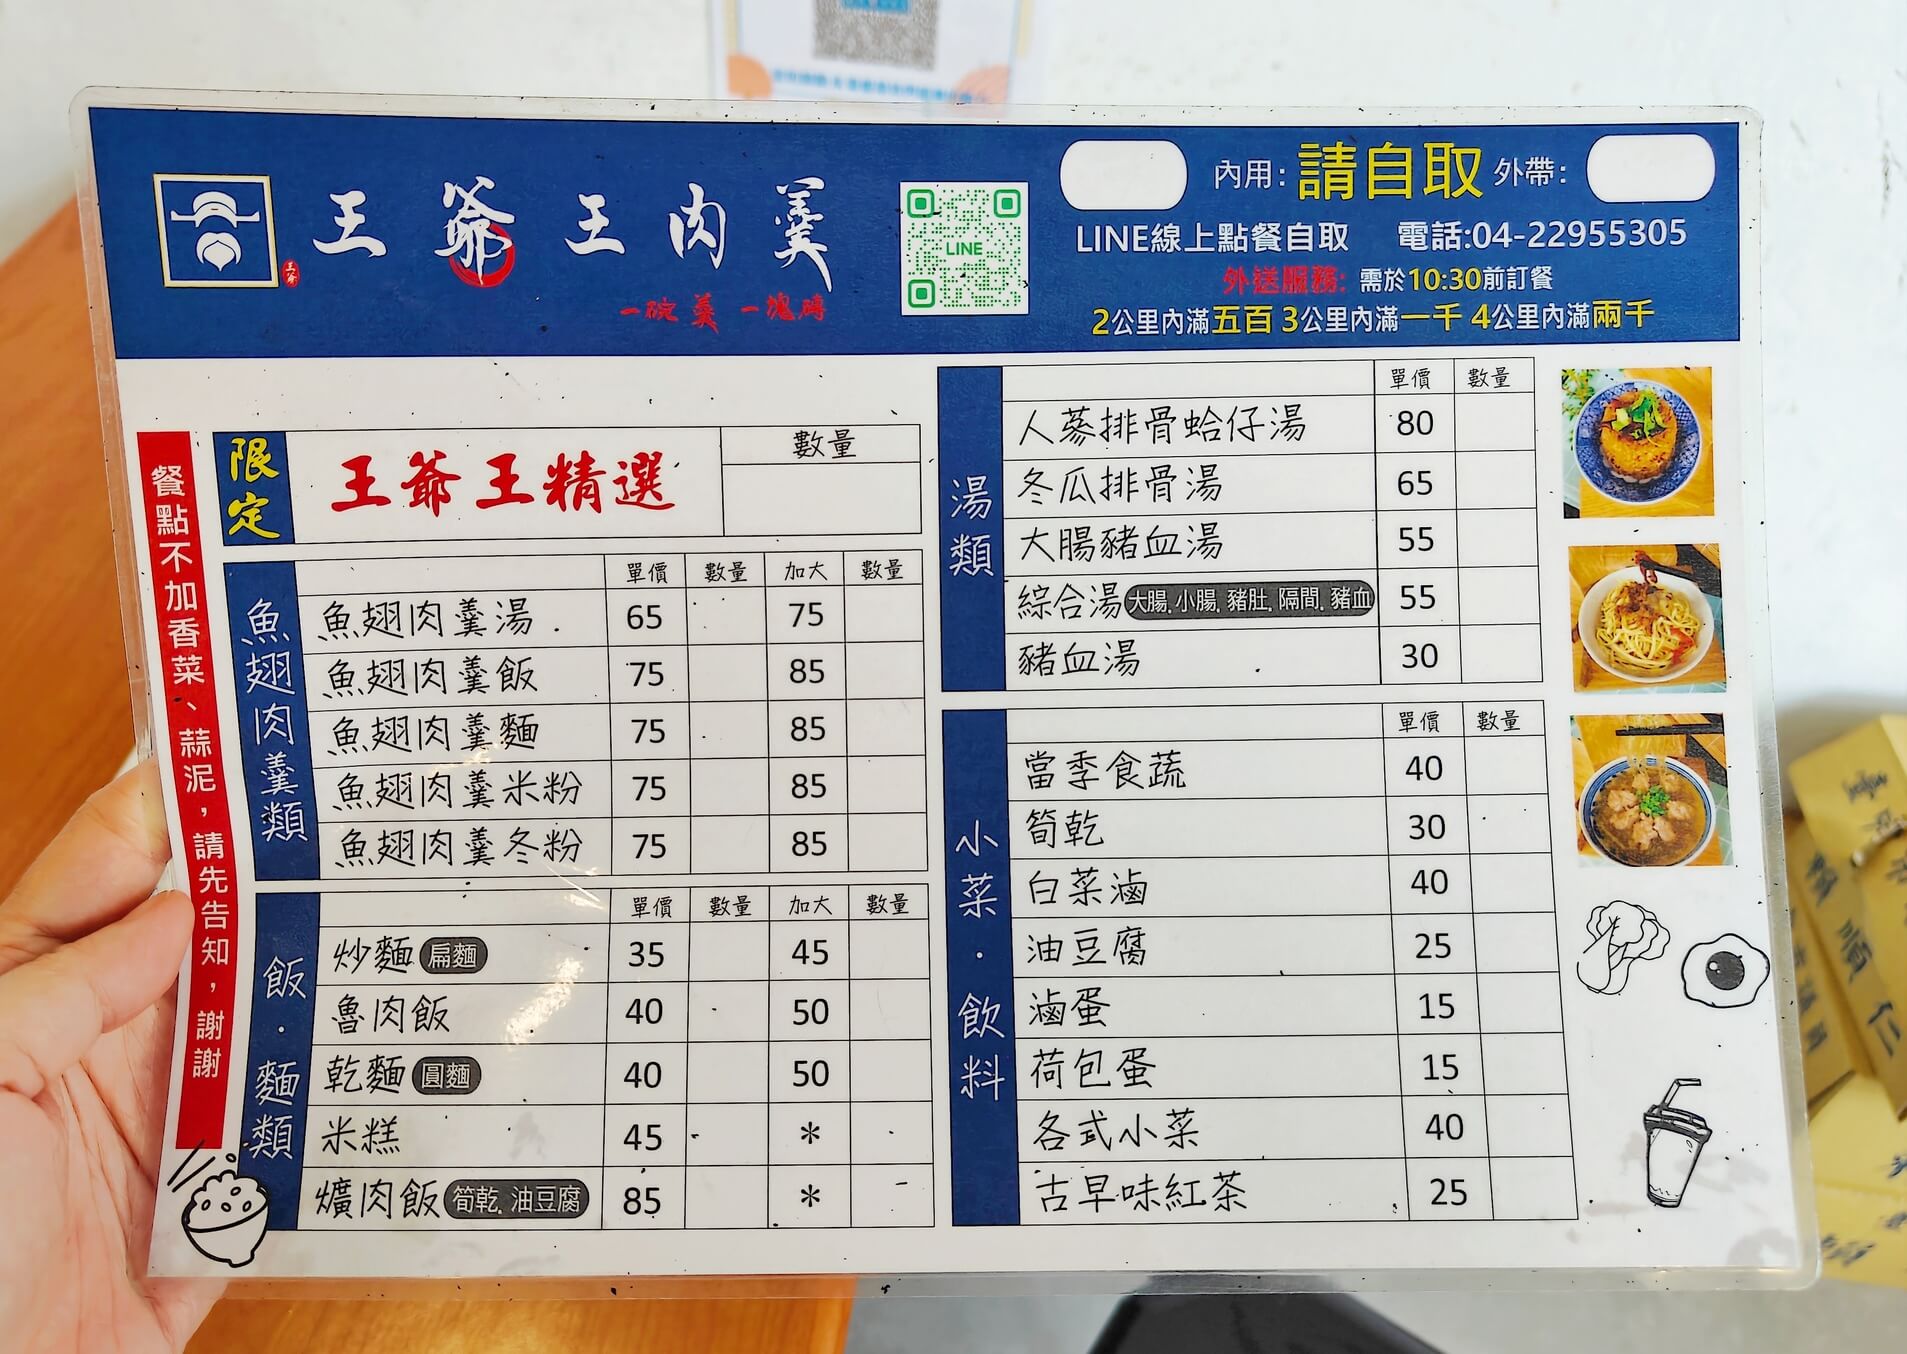 王爺王肉羹
王爺
一碗羹 一塊磚
LINE
內用: 請自取 外帶:
LINE線上點餐自取 電話:04-22955305
外送服務: 需於10:30前訂餐
2公里內滿五百 3公里內滿一千 4公里內滿兩千
餐點不加香菜、蒜泥，請先告知，謝謝
限定 王爺王精選 數量
魚翅肉羹類
單價 數量 加大 數量
魚翅肉羹湯 65 75
魚翅肉羹飯 75 85
魚翅肉羹麵 75 85
魚翅肉羹米粉 75 85
魚翅肉羹冬粉 75 85
飯·麵類
單價 數量 加大 數量
炒麵 扁麵 35 45
魯肉飯 40 50
乾麵 圓麵 40 50
米糕 45 *
爌肉飯 筍乾. 油豆腐 85 *
湯類
單價 數量
人蔘排骨蛤仔湯 80
冬瓜排骨湯 65
大腸豬血湯 55
綜合湯 大腸. 小腸. 豬肚. 隔間. 豬血 55
豬血湯 30
小菜·飲料
單價 數量
當季食蔬 40
筍乾 30
白菜滷 40
油豆腐 25
滷蛋 15
荷包蛋 15
各式小菜 40
古早味紅茶 25